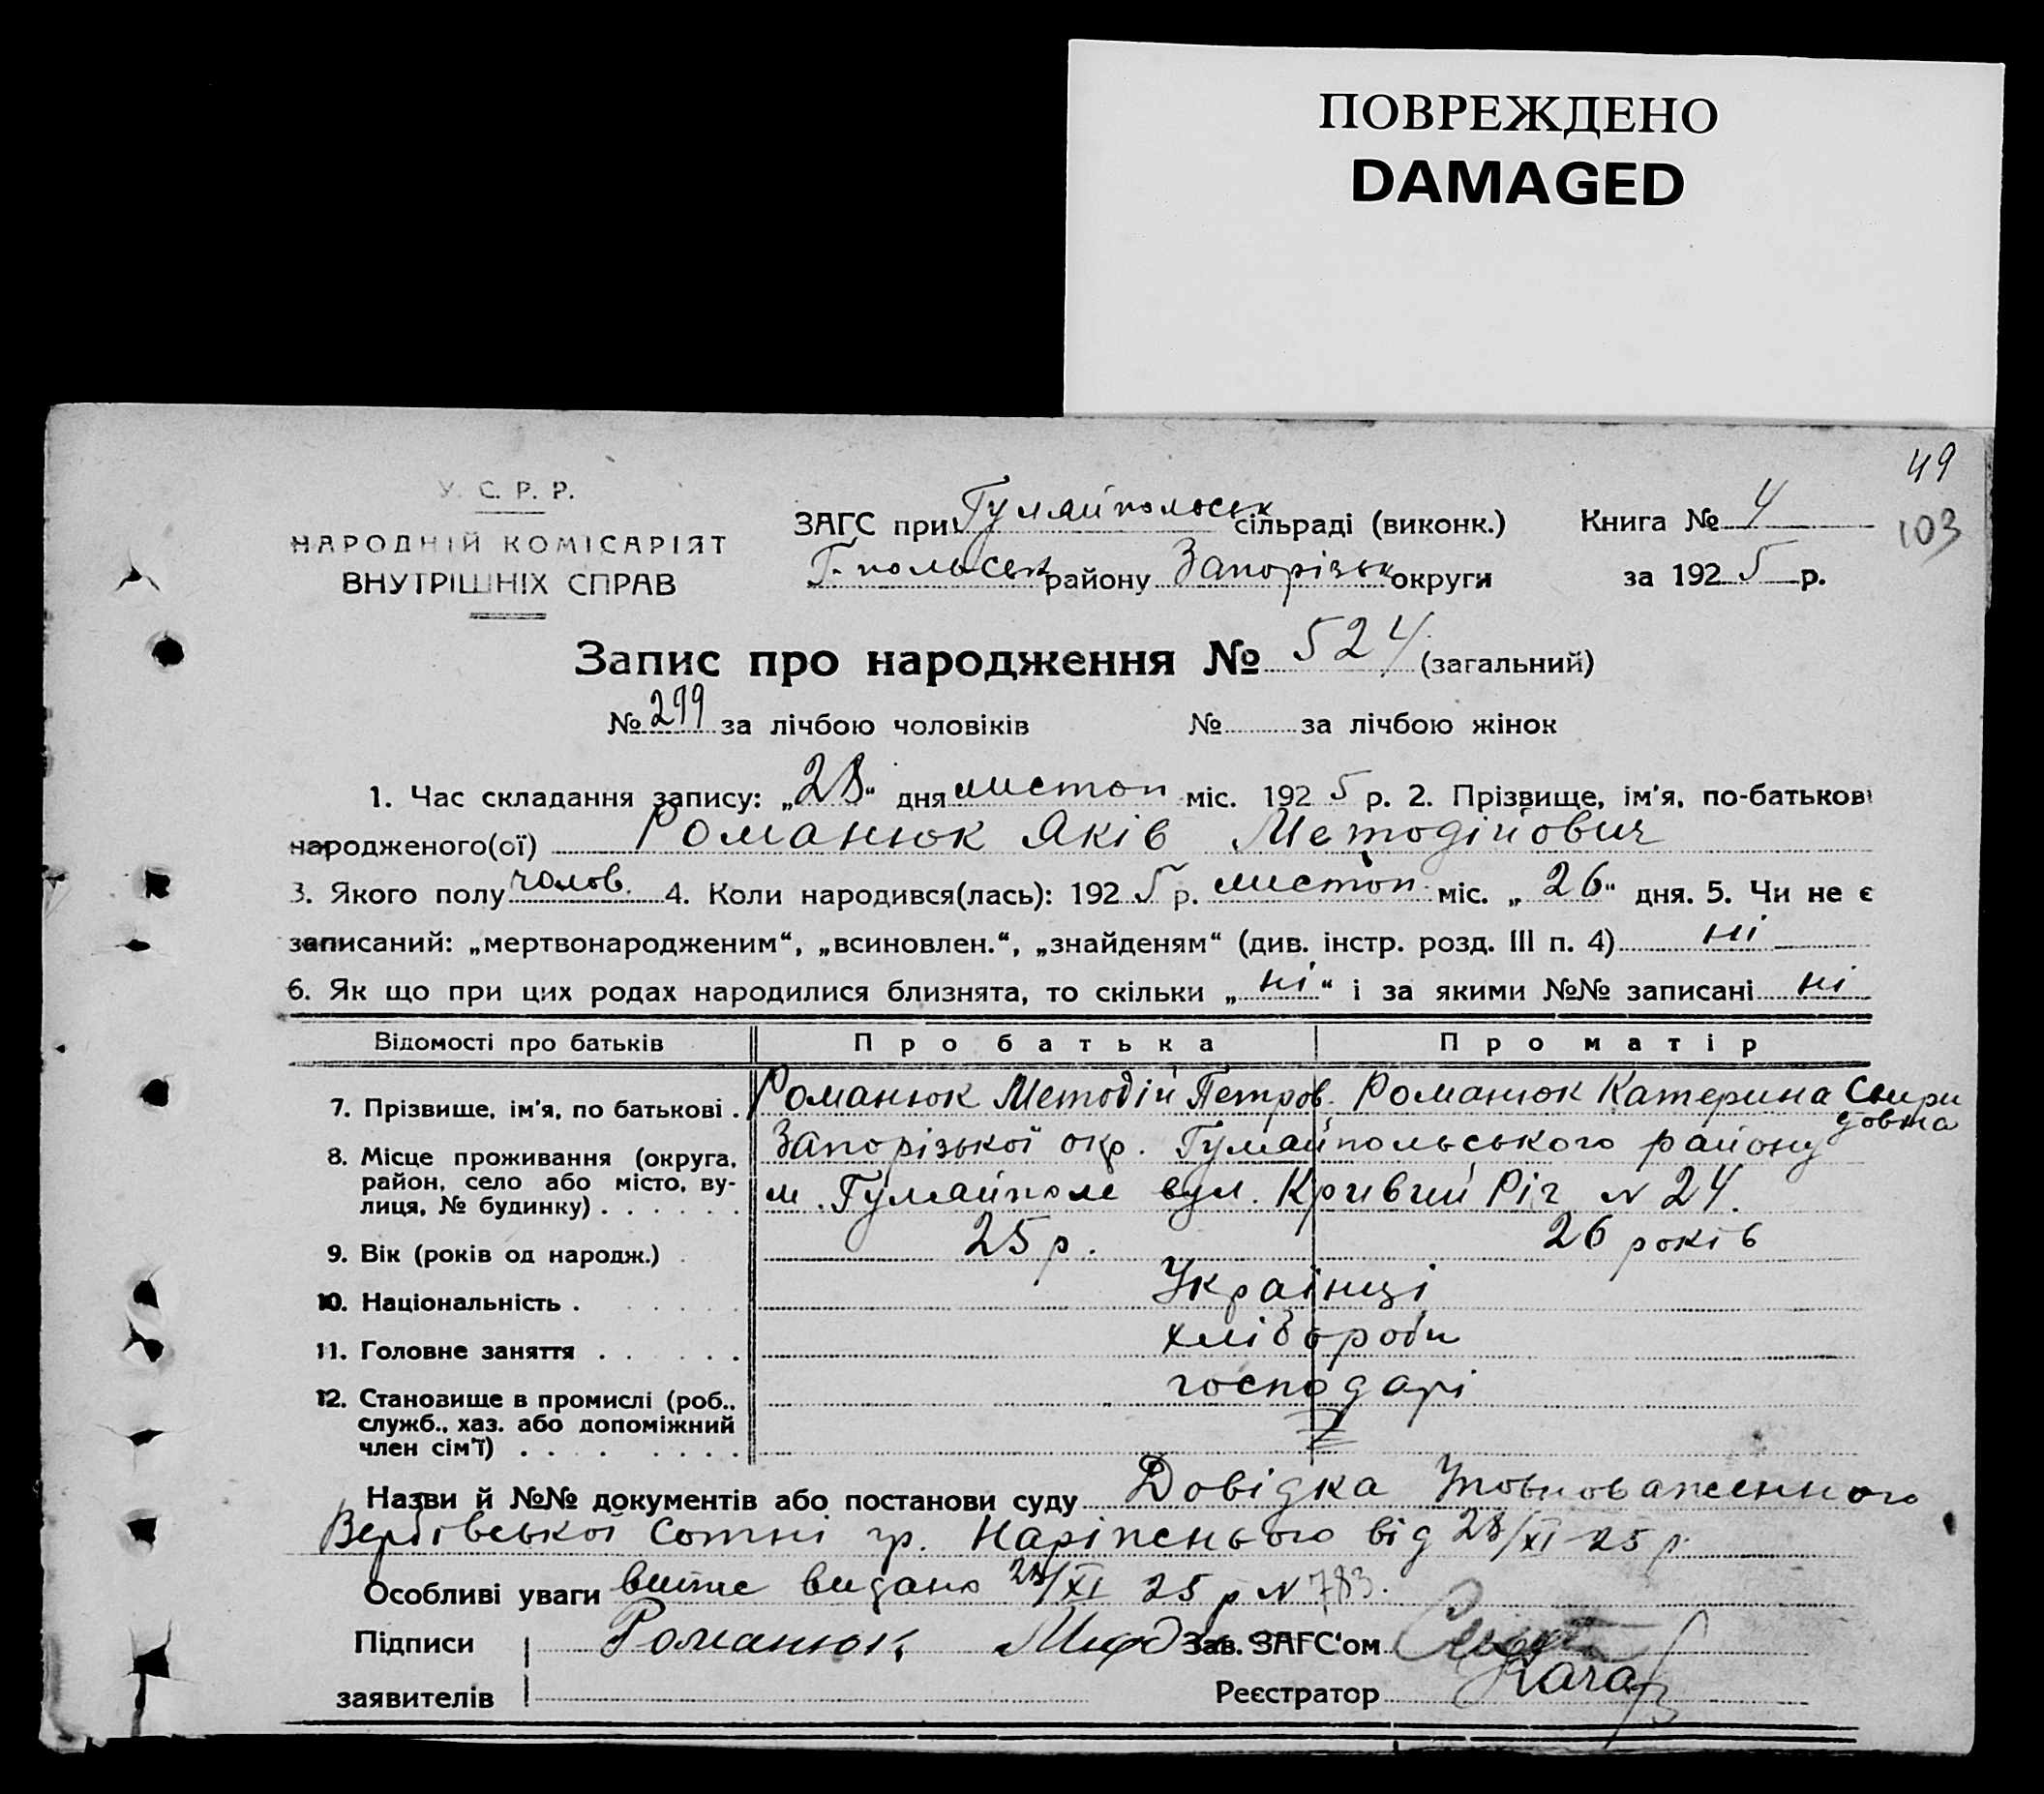 ПОВРЕЖДЕНО
DAMAGED
49
103
У. С. Р. Р.
НАРОДНІЙ КОМІСАРІЯТ
ВНУТРІШНІХ СПРАВ
ЗАГС при Гуляйпольськ сільраді (виконк.) Книга № 4
Г-польськ району Запорізьк округи за 1925 р.
Запис про народження № 524 (загальний)
№ 299 за лічбою чоловіків № за лічбою жінок
1. Час складання запису: „28“ дня листоп міс. 1925 р. 2. Прізвище, ім'я, по-батькові
народженого(ої) Романюк Яків Методійович
3. Якого полу чолов. 4. Коли народився(лась): 1925 р. листоп. міс. „26“ дня. 5. Чи не є
записаний: „мертвонародженим“, „всиновлен.“, „знайденям“ (див. інстр. розд. III п. 4) ні
6. Як що при цих родах народилися близнята, то скільки „ні“ і за якими №№ записані ні
Відомості про батьків Про батька Про матір
7. Прізвище, ім'я, по батькові . Романюк Методій Петров. Романюк Катерина Спиридовна
8. Місце проживання (округа, Запорізької окр. Гуляйпольського району
район, село або місто, ву-
лиця, № будинку) . . . . . . м. Гуляйполе вул. Кривий Ріг N 24.
9. Вік (років од народж.) . 25 р. 26 років
10. Національність . . . . . . Українці
11. Головне заняття . . . . . . хлібороби
12. Становище в промислі (роб., господарі
служб., хаз. або допоміжний
член сім'ї) . . . . . . . .
Назви й №№ документів або постанови суду Довідка Уповноваженного
Вербівської Сотні гр. від 28/XI 25 р.
Особливі уваги видано 28/XI 25 р N 783.
Підписи Романюк Зав. ЗАГС'ом
заявителів Реєстратор